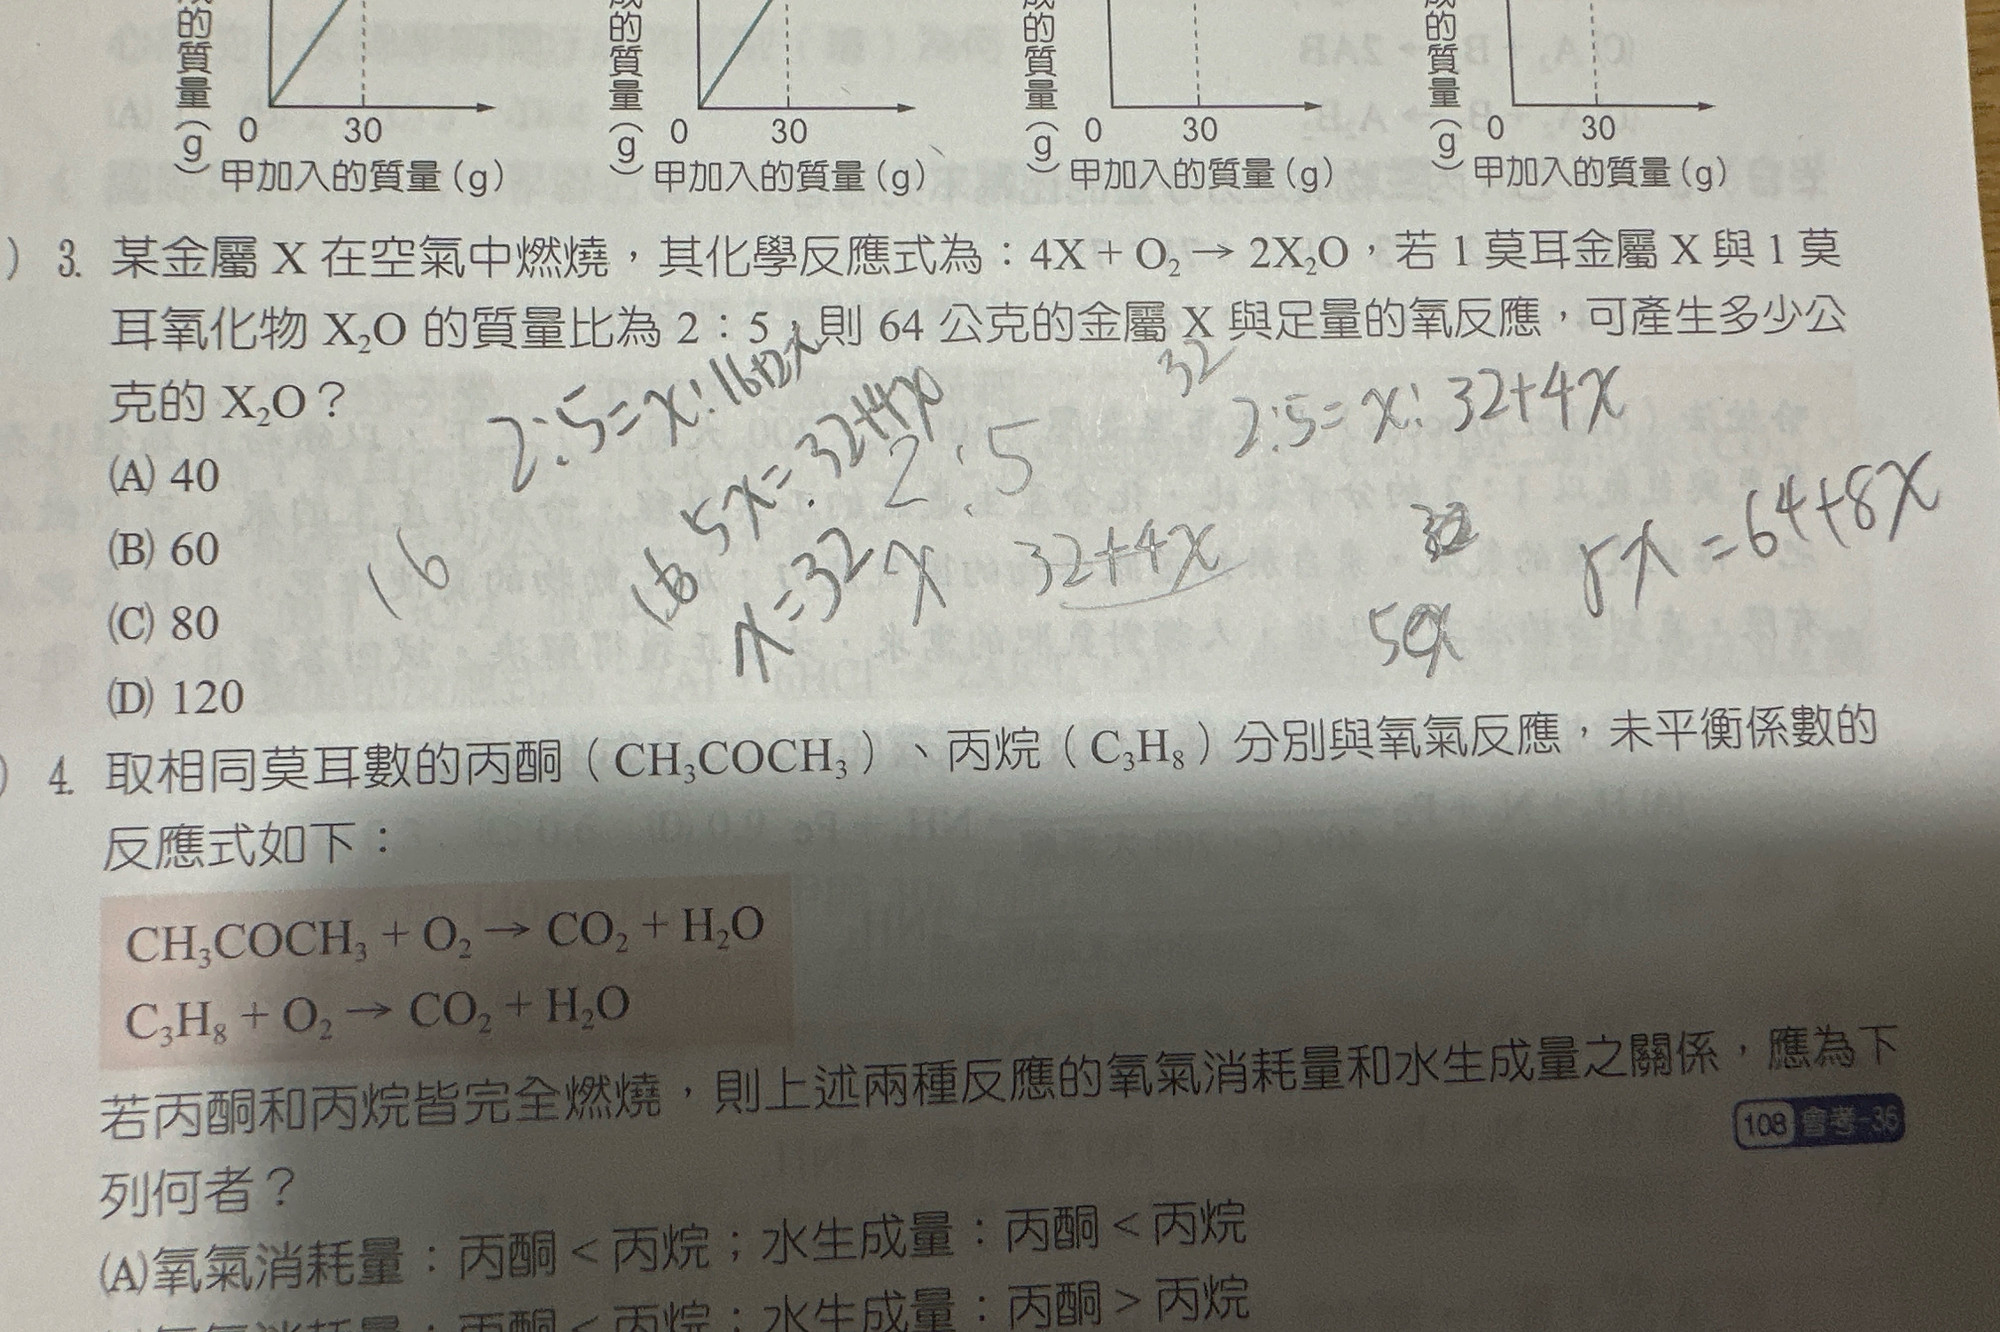 的質量(g) 的質量(g) 的質量(g) 的質量(g)
0 30 0 30 0 30 0 30
甲加入的質量(g) 甲加入的質量(g) 甲加入的質量(g) 甲加入的質量(g)
) 3. 某金屬 X 在空氣中燃燒,其化學反應式為:4X + O₂ → 2X₂O,若 1 莫耳金屬 X 與 1 莫
耳氧化物 X₂O 的質量比為 2:5,則 64 公克的金屬 X 與足量的氧反應,可產生多少公
克的 X₂O?
2:5=x:16+2x
5x=32+4x
x=32
16
16
2:5
x 32+4x
32
2:5=x:32+4x
32
5x
5x=64+8x
(A) 40
(B) 60
(C) 80
(D) 120
) 4. 取相同莫耳數的丙酮(CH₃COCH₃)、丙烷(C₃H₈)分別與氧氣反應,未平衡係數的
反應式如下:
CH₃COCH₃ + O₂ → CO₂ + H₂O
C₃H₈ + O₂ → CO₂ + H₂O
若丙酮和丙烷皆完全燃燒,則上述兩種反應的氧氣消耗量和水生成量之關係,應為下
列何者?
108 會考-36
(A)氧氣消耗量:丙酮 < 丙烷;水生成量:丙酮 < 丙烷
氧氣消耗量:丙酮 < 丙烷;水生成量:丙酮 > 丙烷